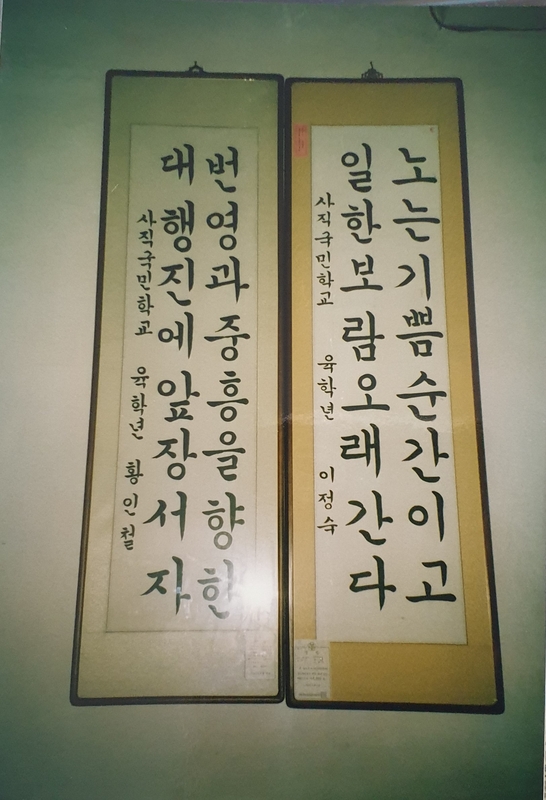 노는기쁨순간이고
일한보람오래간다
사직국민학교 육학년 이정숙
번영과중흥을향한
대행진에앞장서자
사직국민학교 육학년 황인철